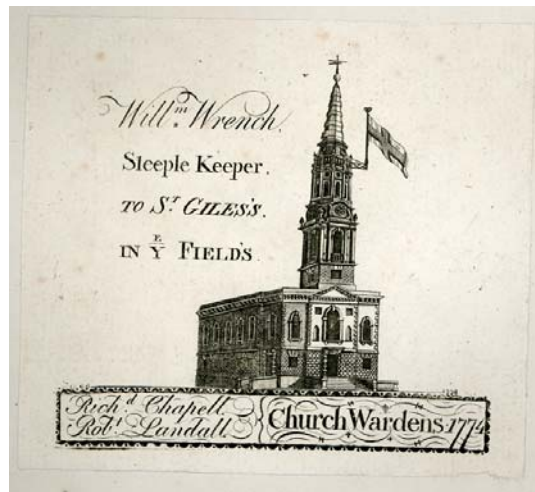 Will.m Wrench.
Steeple Keeper.
TO S.T GILES'S.
IN Y.E FIELD'S.
Rich.d Chapell.
Rob.t Landall.
Church Wardens 1774